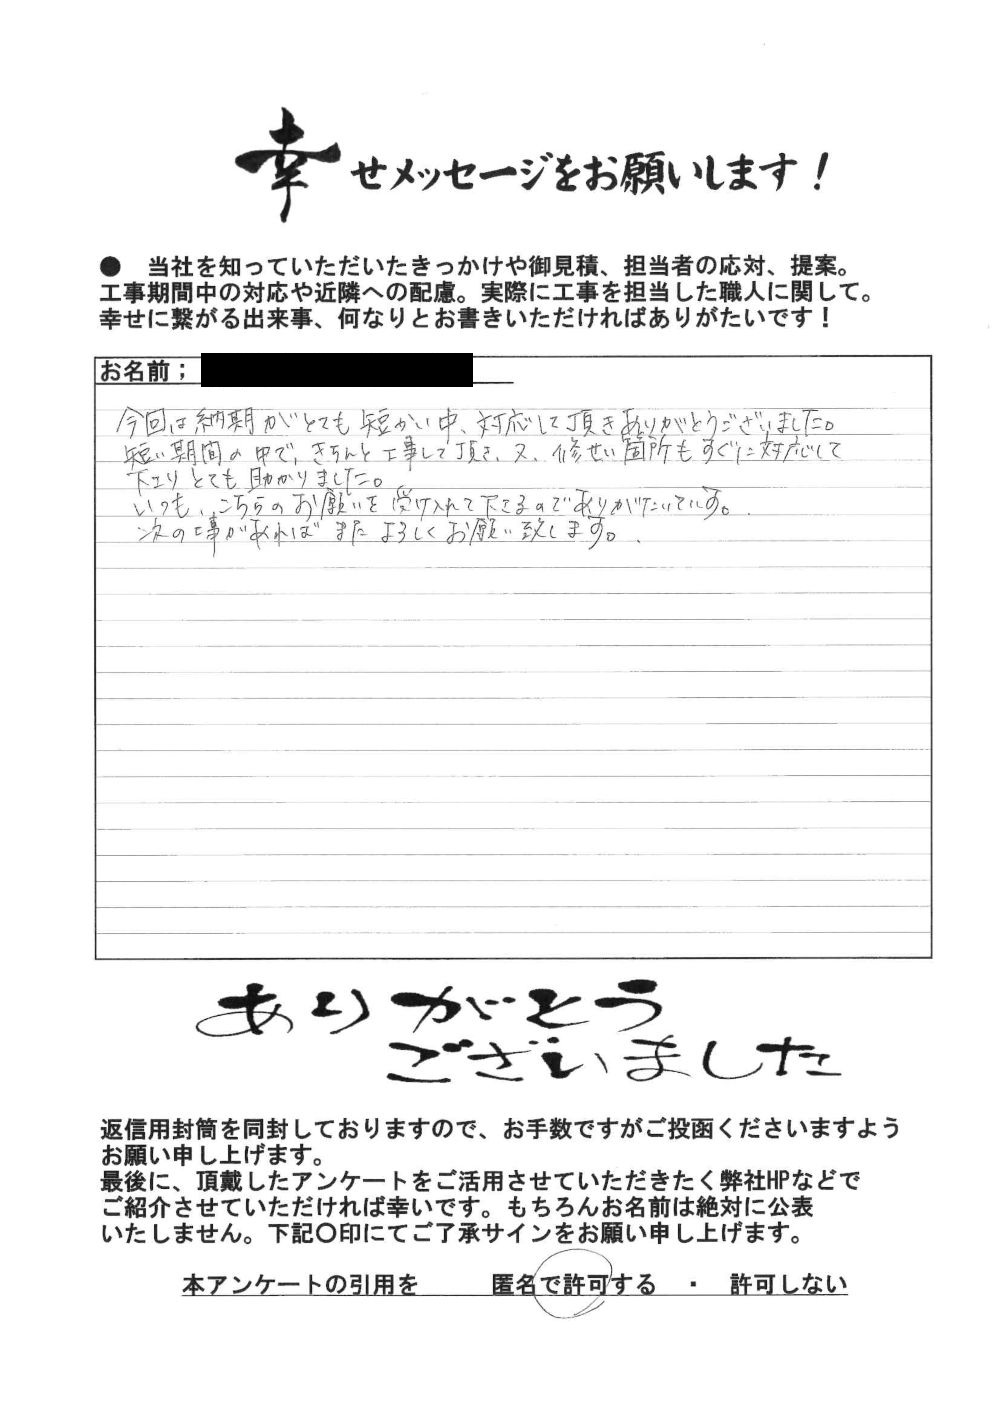 幸せメッセージをお願いします！
●　当社を知っていただいたきっかけや御見積、担当者の応対、提案。
工事期間中の対応や近隣への配慮。実際に工事を担当した職人に関して。
幸せに繋がる出来事、何なりとお書きいただければありがたいです！
お名前；
今回は納期がとても短かい中、対応して頂きありがとうございました。
短い期間の中で、きちんと工事して頂き、又、修せい箇所もすぐに対応して
下さりとても助かりました。
いつも、こちらのお願いを受け入れて下さるのでありがたいです。
次の工事があればまたよろしくお願い致します。
ありがとう
ございました
返信用封筒を同封しておりますので、お手数ですがご投函くださいますよう
お願い申し上げます。
最後に、頂戴したアンケートをご活用させていただきたく弊社HPなどで
ご紹介させていただければ幸いです。もちろんお名前は絶対に公表
いたしません。下記〇印にてご了承サインをお願い申し上げます。
本アンケートの引用を　　　匿名で許可する　・　許可しない